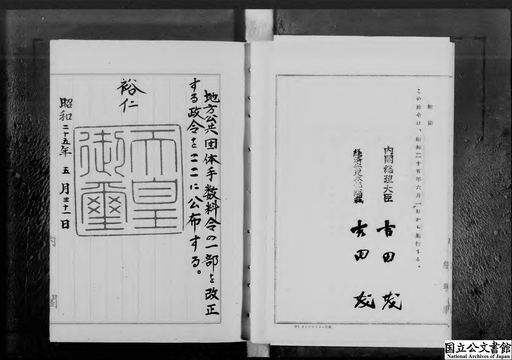 附則
この政令は、昭和二十五年六月一日から施行する。
内閣総理大臣 吉田茂
吉田茂
地方公共団体手数料令の一部を改正
する政令をここに公布する。
裕仁
天皇
御璽
昭和二十五年五月三十一日
国立公文書館
National Archives of Japan